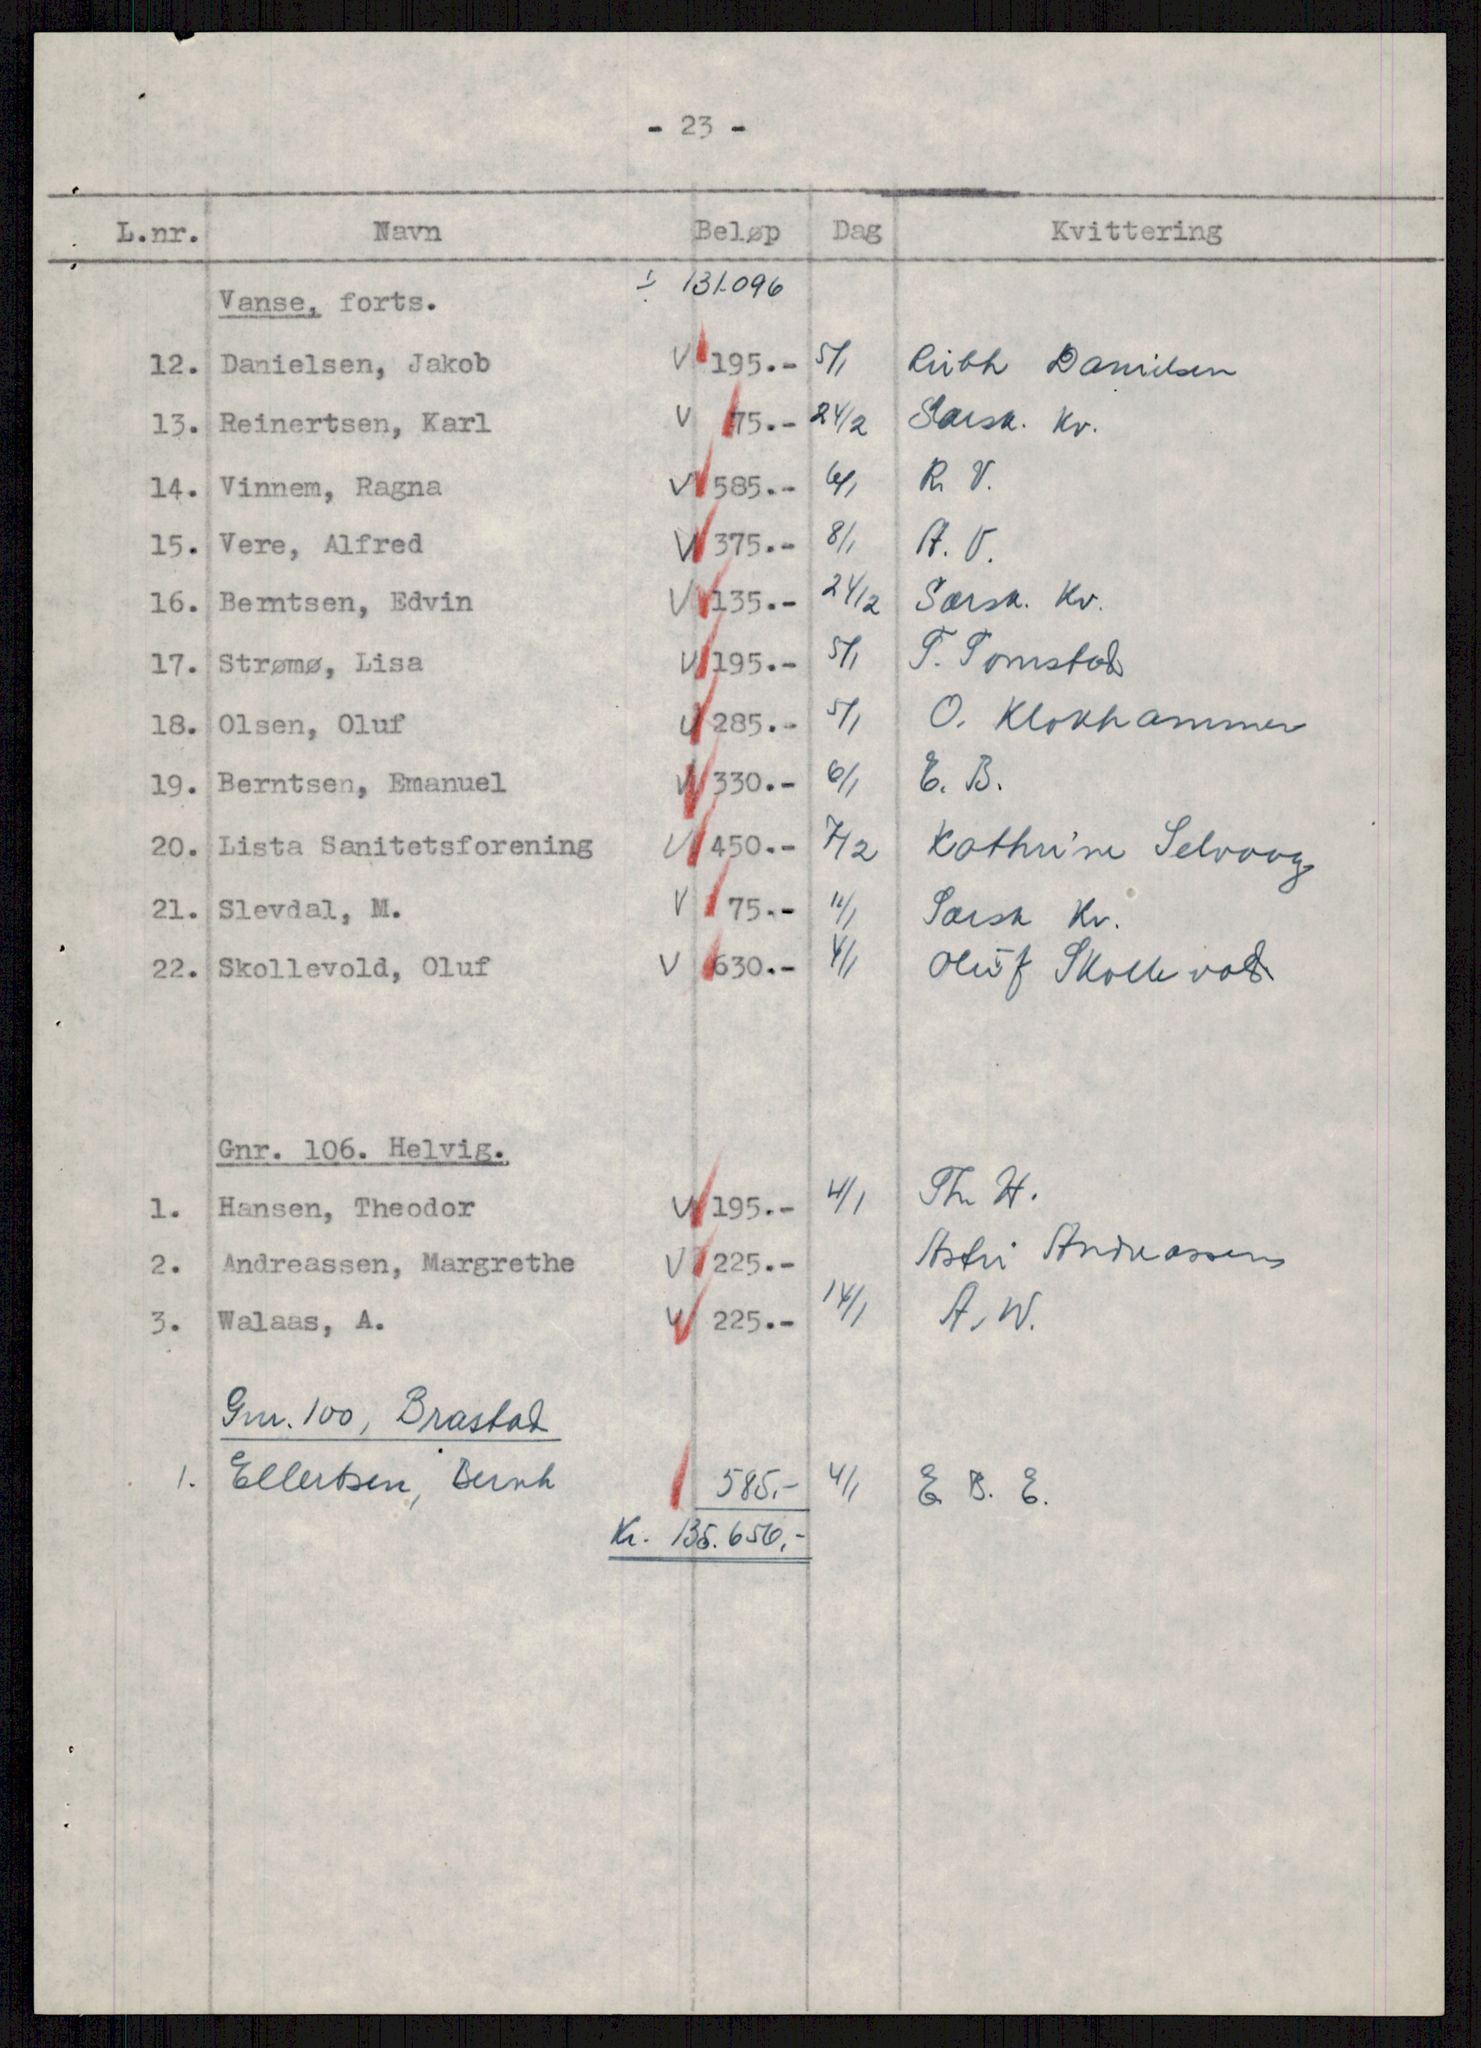 - 23 -
L.nr. Navn Beløp Dag Kvittering
Vanse, forts. 131.096
12. Danielsen, Jakob V 195.- 5/1 Danielsen
13. Reinertsen, Karl V 75.- 24/2 Særsk. Kv.
14. Vinnem, Ragna V 585.- 6/1 R. V.
15. Vere, Alfred V 375.- 8/1 A. V.
16. Berntsen, Edvin V 135.- 24/2 Særsk. Kv.
17. Strømø, Lisa V 195.- 5/1 T. Tomstad
18. Olsen, Oluf V 285.- 5/1 O. Klokhammer
19. Berntsen, Emanuel V 330.- 6/1 E. B.
20. Lista Sanitetsforening V 450.- 7/2 Kathrine Selvaag
21. Slevdal, M. V 75.- 11/1 Særsk Kv.
22. Skollevold, Oluf V 630.- 4/1 Oluf Skollevold
Gnr. 106. Helvig.
1. Hansen, Theodor V 195.- 4/1 Th. H.
2. Andreassen, Margrethe V 225.- Astri Andreassen
3. Walaas, A. V 225.- 14/1 A. W.
Gnr. 100, Brastad
1. Ellertsen, Bernh 585,- 4/1 E. B. E.
Kr. 135.656,-